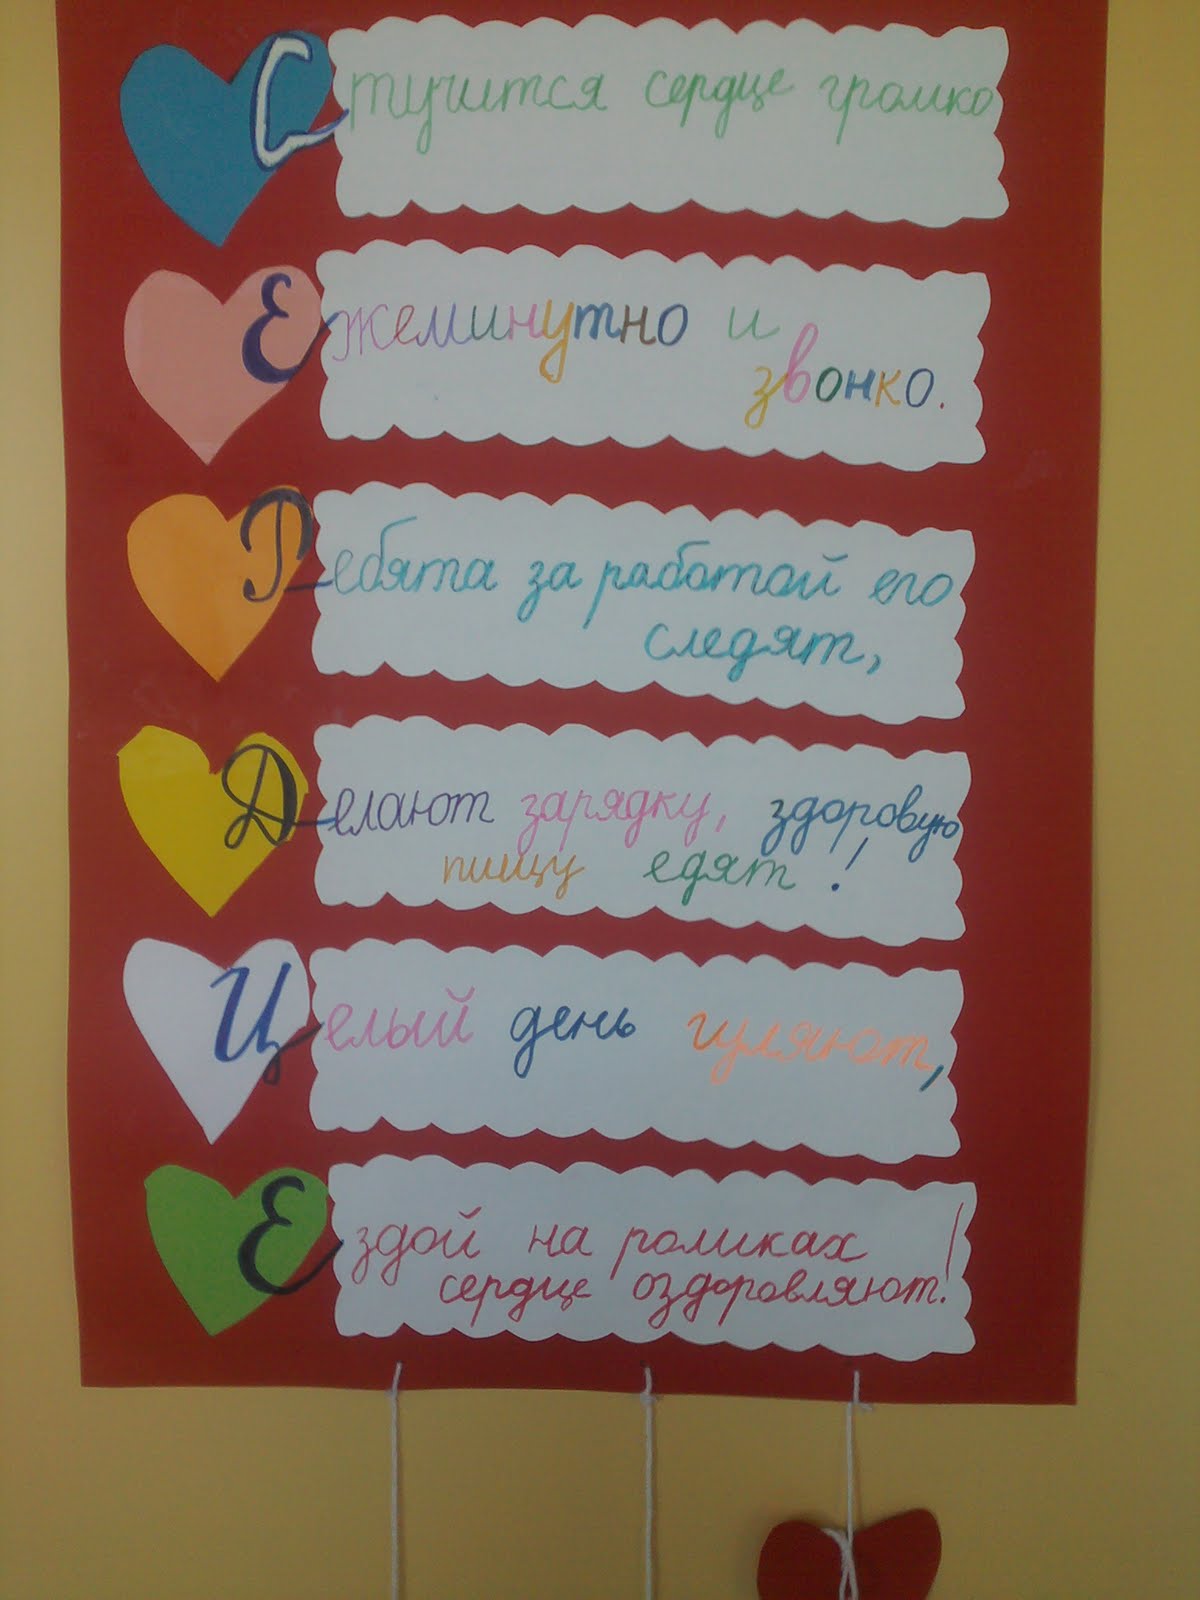 Стучится сердце громко
Ежеминутно и
звонко.
Ребята за работой его
следят,
Делают зарядку, здоровую
пищу едят!
Целый день гуляют,
Ездой на роликах
сердце оздоровляют!